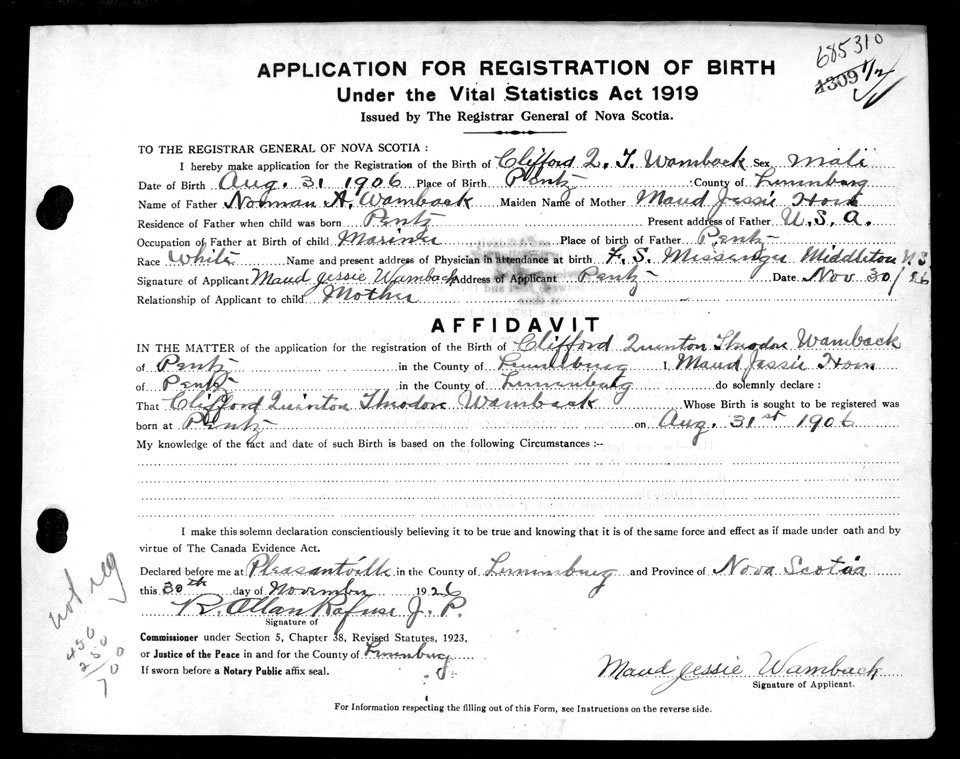 685310
1309 1/2
APPLICATION FOR REGISTRATION OF BIRTH
Under the Vital Statistics Act 1919
Issued by The Registrar General of Nova Scotia.
TO THE REGISTRAR GENERAL OF NOVA SCOTIA :
I hereby make application for the Registration of the Birth of Clifford Q. T. Wamback Sex Male
Date of Birth Aug. 31 1906 Place of Birth Pentz County of Lunenburg
Name of Father Norman A. Wamback Maiden Name of Mother Maud Jessie
Residence of Father when child was born Pentz Present address of Father U.S.A.
Occupation of Father at Birth of child Mariner Place of birth of Father Pentz
Race White Name and present address of Physician in attendance at birth F. S. Messenger Middleton N S
Signature of Applicant Maud Jessie Wamback Address of Applicant Pentz Date Nov 30/26
Relationship of Applicant to child Mother
AFFIDAVIT
IN THE MATTER of the application for the registration of the Birth of Clifford Quinton Theodore Wamback
of Pentz in the County of Lunenburg I, Maud Jessie
of Pentz in the County of Lunenburg do solemnly declare :
That Clifford Quinton Theodore Wamback Whose Birth is sought to be registered was
born at Pentz on Aug. 31st 1906
My knowledge of the fact and date of such Birth is based on the following Circumstances :--
I make this solemn declaration conscientiously believing it to be true and knowing that it is of the same force and effect as if made under oath and by
virtue of The Canada Evidence Act.
Declared before me at Pleasantville in the County of Lunenburg and Province of Nova Scotia
this 30th day of November 1926
R. Allan Rafuse J. P.
Signature of
Commissioner under Section 5, Chapter 38, Revised Statutes, 1923,
or Justice of the Peace in and for the County of Lunenburg
If sworn before a Notary Public affix seal.
not reg
450
250
700
Maud Jessie Wamback
Signature of Applicant.
For Information respecting the filling out of this Form, see Instructions on the reverse side.